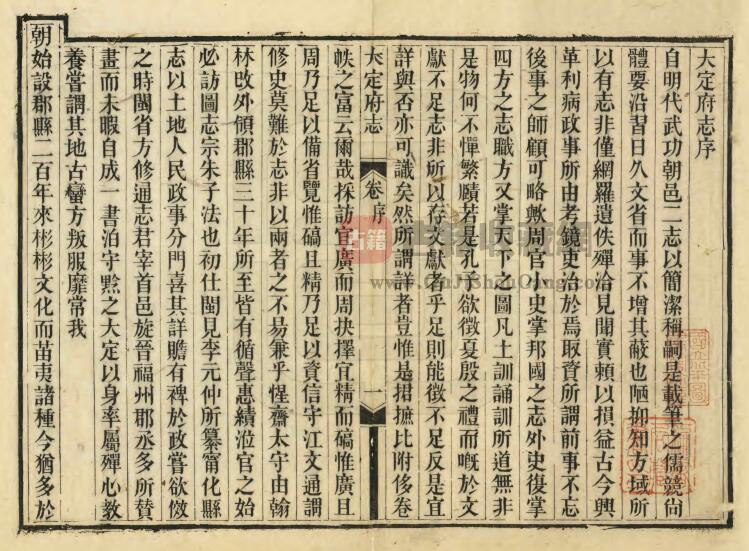 大定府志序
自明代武功朝邑二志以簡潔稱嗣是載筆之儒競尙
體要沿習日久文省而事不增其蔽也陋抑知方域所
以有志非僅網羅遺佚殫洽見聞實賴以損益古今興
革利病政事所由考鏡吏治於焉取資所謂前事不忘
後事之師顧可略歟周官小史掌邦國之志外史復掌
四方之志職方又掌天下之圖凡土訓誦訓所道無非
是物何不憚繁賾若是孔子欲徵夏殷之禮而嘅於文
獻不足志非所以存文獻者乎足則能徵不足反是宜
詳與否亦可識矣然所謂詳者豈惟是捃摭比附侈卷
大定府志 卷序 一
帙之富云爾哉採訪宜廣而周抉擇宜精而碻惟廣且
周乃足以備省覽惟碻且精乃足以資信守江文通謂
修史莫難於志非以兩者之不易兼乎惺齋太守由翰
林改外領郡縣三十年所至皆有循聲惠績涖官之始
必訪圖志宗朱子法也初仕閩見李元仲所纂甯化縣
志以土地人民政事分門喜其詳贍有裨於政嘗欲倣
之時閩省方修通志君宰首邑旋晉福州郡丞多所贊
畫而未暇自成一書洎守黔之大定以身率屬殫心教
養嘗謂其地古蠻方叛服靡常我
朝始設郡縣二百年來彬彬文化而苗夷諸種今猶多於
古籍